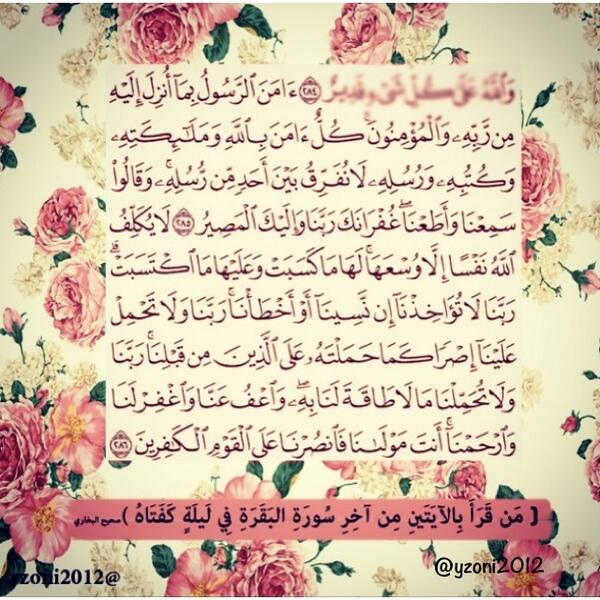 وَاللَّهُ عَلَىٰ كُلِّ شَيْءٍ قَدِيرٌ ٢٨٤ ءَامَنَ ٱلرَّسُولُ بِمَآ أُنزِلَ إِلَيْهِ
مِن رَّبِّهِۦ وَٱلْمُؤْمِنُونَ ۚ كُلٌّ ءَامَنَ بِٱللَّهِ وَمَلَـٰٓئِكَتِهِۦ
وَكُتُبِهِۦ وَرُسُلِهِۦ لَا نُفَرِّقُ بَيْنَ أَحَدٍ مِّن رُّسُلِهِۦ ۚ وَقَالُوا۟
سَمِعْنَا وَأَطَعْنَا ۖ غُفْرَانَكَ رَبَّنَا وَإِلَيْكَ ٱلْمَصِيرُ ٢٨٥ لَا يُكَلِّفُ
ٱللَّهُ نَفْسًا إِلَّا وُسْعَهَا ۚ لَهَا مَا كَسَبَتْ وَعَلَيْهَا مَا ٱكْتَسَبَتْ ۗ
رَبَّنَا لَا تُؤَاخِذْنَآ إِن نَّسِينَآ أَوْ أَخْطَأْنَا ۚ رَبَّنَا وَلَا تَحْمِلْ
عَلَيْنَآ إِصْرًا كَمَا حَمَلْتَهُۥ عَلَى ٱلَّذِينَ مِن قَبْلِنَا ۚ رَبَّنَا
وَلَا تُحَمِّلْنَا مَا لَا طَاقَةَ لَنَا بِهِۦ ۖ وَٱعْفُ عَنَّا وَٱغْفِرْ لَنَا
وَٱرْحَمْنَآ ۚ أَنتَ مَوْلَىٰنَا فَٱنصُرْنَا عَلَى ٱلْقَوْمِ ٱلْكَـٰفِرِينَ ٢٨٦
( مَن قَرَأَ بِالآيَتَينِ مِن آخِرِ سُورَةِ البَقَرَةِ فِي لَيلَةٍ كَفَتَاهُ ) صحيح البخاري
@yzoni2012
yzoni2012@